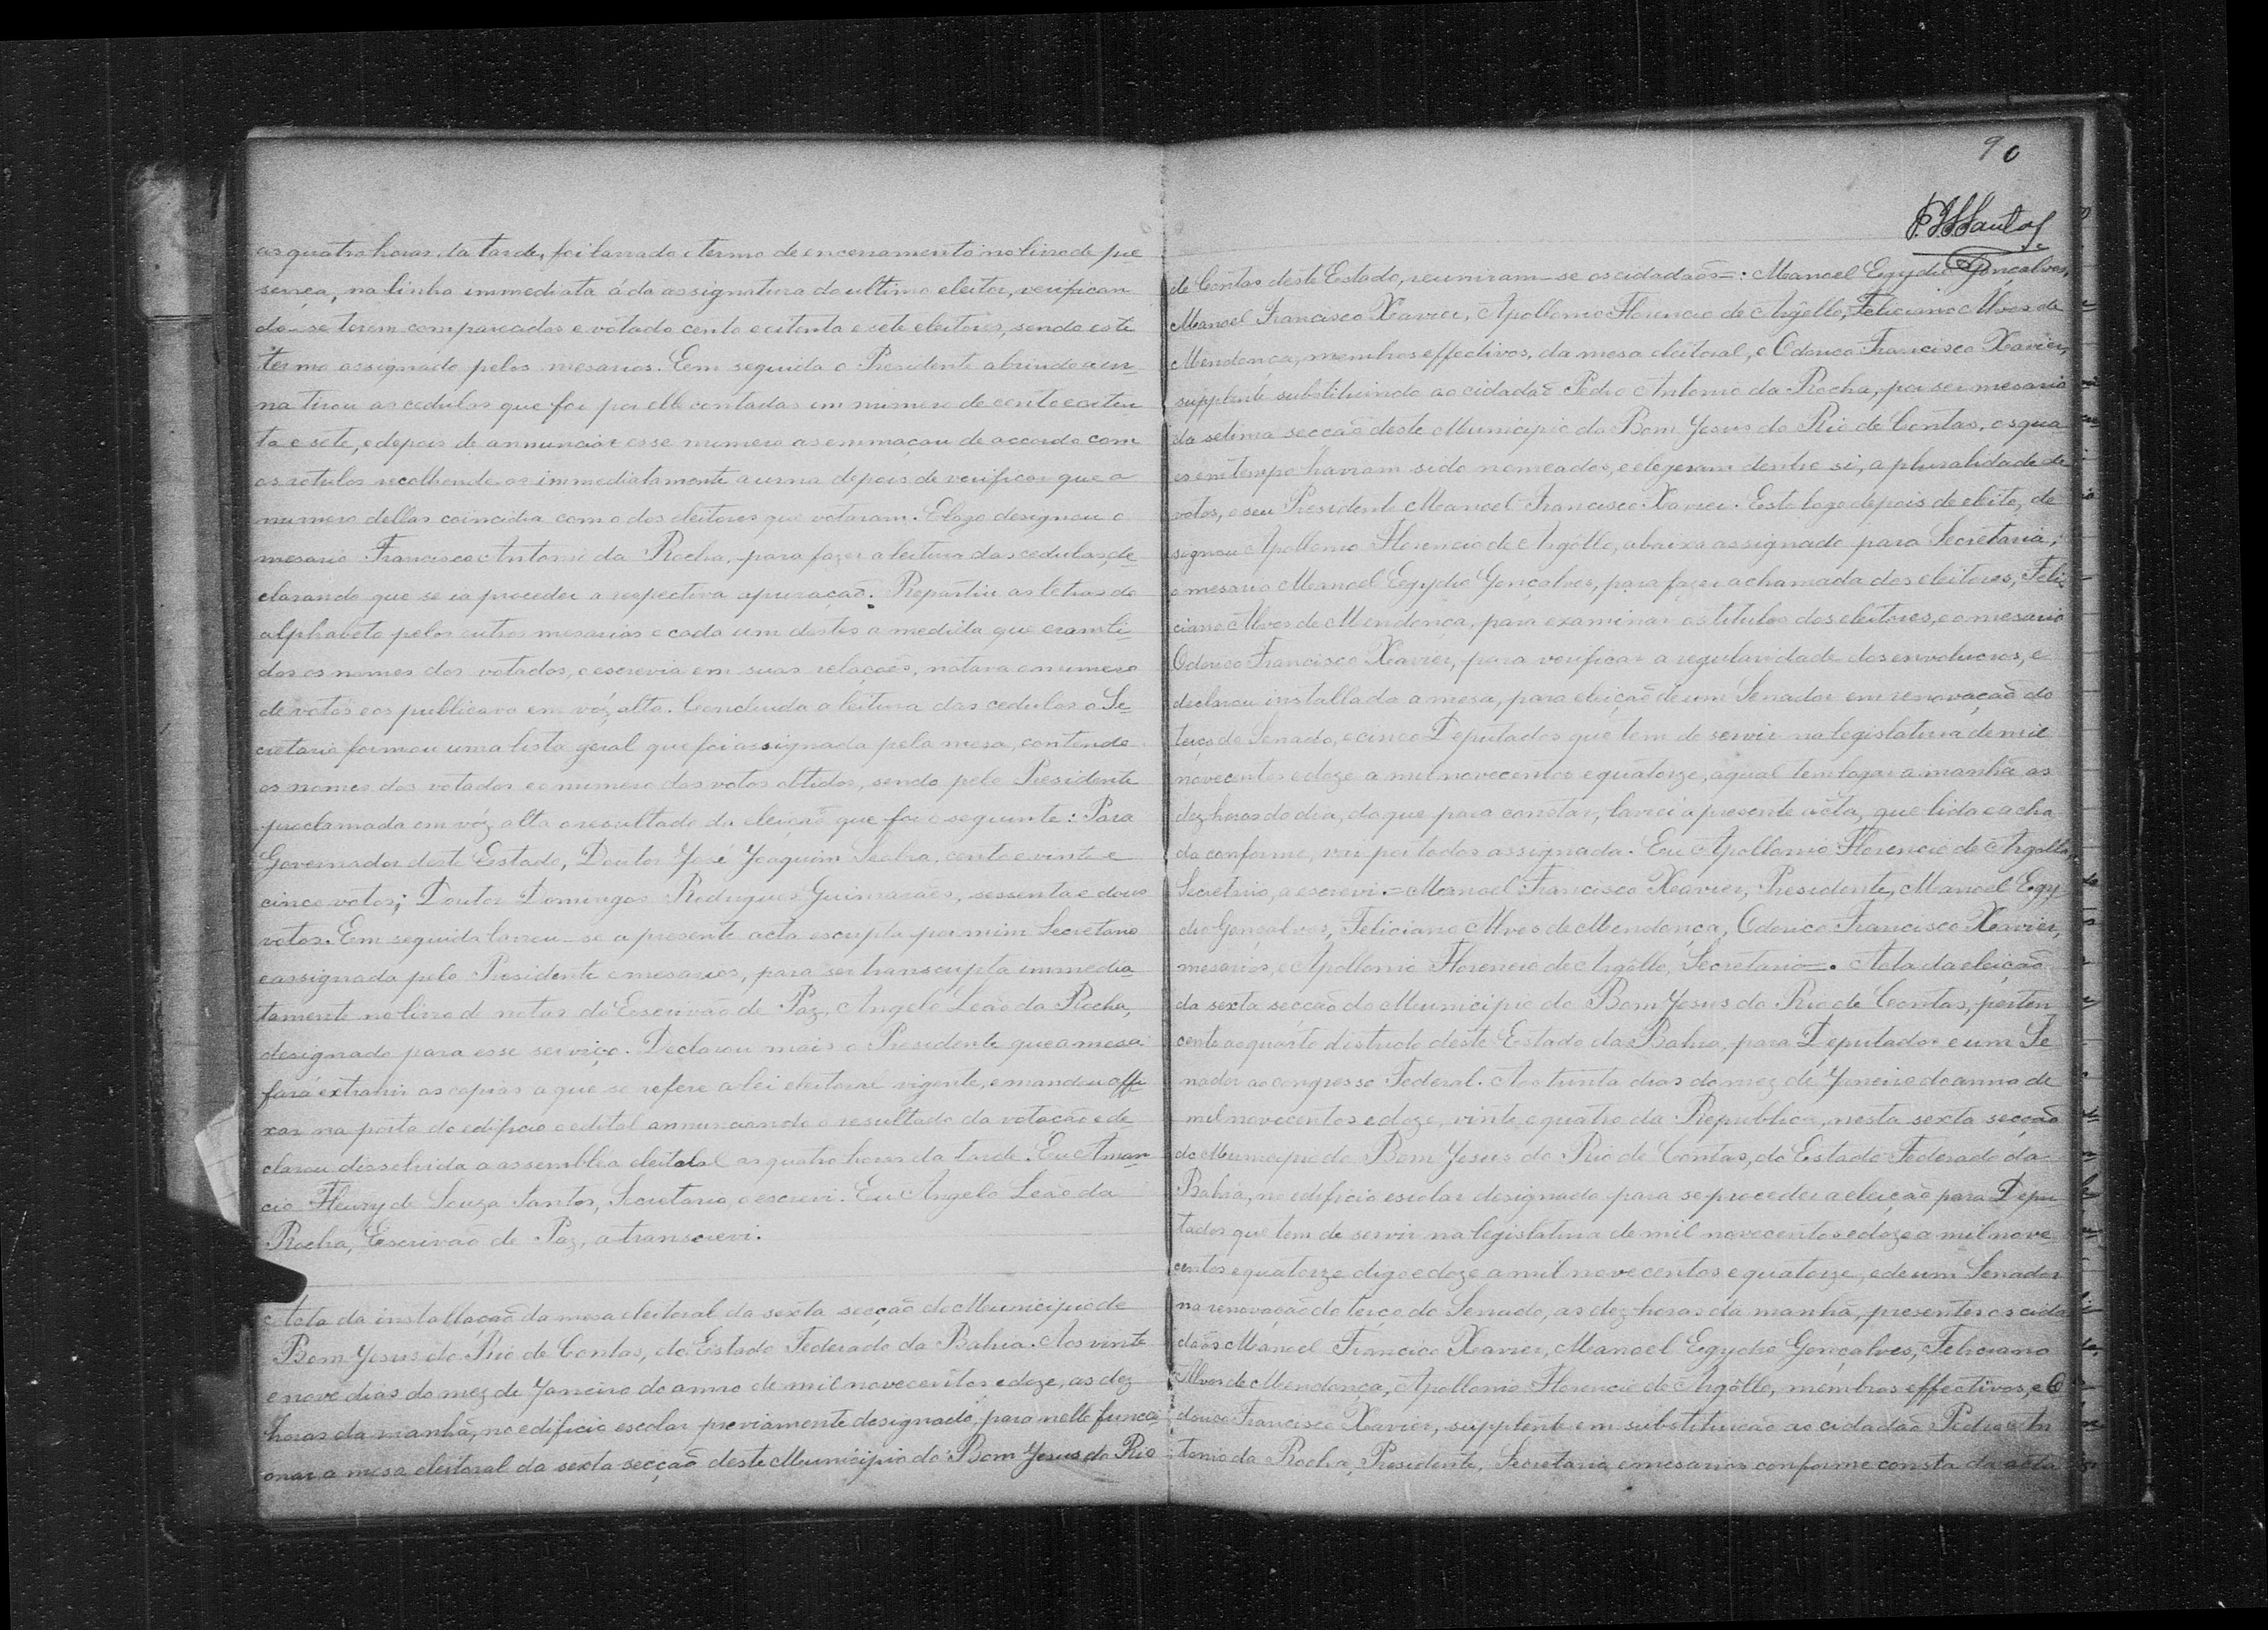 as quatro horas da tarde, foi lavrado o termo de encerramento no livro de pre
sença, na linha immediata á da assignatura do ultimo eleitor, verifican
do-se terem comparecado e votado cento e oitenta e sete eleitores, sendo este
termo assignado pelos mesarios. Eem seguida o Presidente abrindo a ur-
na tirou as cedulas que foi por elle contadas em numero de cento e oiten
ta e sete, e depois de annunciar esse numero as emmaçou de accordo com
os rotulos recolhendo as immediatamente a urna depois de verificar que o
numero dellas coincidia com o dos eleitores que votaram. E logo designou o
mesario Francisco Antonio da Rocha, para fazer a leitura das cedulas, de
clarando que se ia proceder a respectiva apuração. Repartiu as letras do
alphabeto pelos outros mesarios e cada um destes a medida que eram li
dos os nomes dos votados, o escrevia em suas relações, notava o numero
de votos e os publicava em vóz alta. Concluida a leitura das cedulas o Se-
cretario formou uma lista geral que foi assignada pela mesa, contendo
os nomes dos votados e o numero dos votos obtidos, sendo pelo Presidente
proclamada em vóz alta o resultado da eleição que foi o seguinte: Para
Governador deste Estado, Doutor José Joaquim Seabra, cento e vinte e
cinco votos; Doutor Domingos Rodrigues Guimarães, sessenta e dous
votos. Em seguida lavrou-se a presente acta escripta por mim Secretario
e assignada pelo Presidente e mesarios, para ser transcripta immedia
tamente no livro de notas do Escrivão de Paz, Angelo Leão da Rocha,
designado para esse serviço. Declarou mais o Presidente que a mesa
fará extrahir as copias a que se refere a lei eleitoral vigente, e mandou affi
xar na porta do edificio o edital annunciando o resultado da votação e de
clarou dissolvida a assemblea eleitoral as quatro horas da tarde. Eu Aman
cio Fleury de Souza Santos, Secretario, o escrevi. Eu Angelo Leão da
Rocha, Escrivão de Paz, a transcrevi.
Acta da installação da mesa eleitoral da sexta secção do Municipio de
Bom Jesus do Rio de Contas, do Estado Federado da Bahia. Aos vinte
e nove dias do mez de Janeiro do anno de mil novecentos e doze, as dez
horas da manhã, no edificio escolar previamente designado para nelle funcci
onar a mesa eleitoral da sexta secção deste Municipio do Bom Jesus do Rio
90
de Contas deste Estado, reuniram-se os cidadãos=: Manoel Egydio Gonçalves,
Manoel Francisco Xavier, Apollonio Florencio de Argôllo, Feliciano Alves de
Mendonça, membros effectivos, da mesa eleitoral, e Odorico Francisco Xavier,
supplente substituindo ao cidadão Pedro Antonio da Rocha, por ser mesario
da setima secção deste Municipio do Bom Jesus do Rio de Contas, os qua
es em tempo haviam sido nomeados, e elegeram dentre si, a pluralidade de
votos, o seu Presidente Manoel Francisco Xavier. Este logo depois de eleito, de
signou Apollonio Florencio de Argôllo, abaixo assignado para Secretario,
o mesario Manoel Egydio Gonçalves, para fazer a chamada dos eleitores, Feli
ciano Alves de Mendonça, para examinar os titulos dos eleitores, e o mesario
Odorico Francisco Xavier, para verificar a regularidade dos envolucros, e
declarou installada a mesa, para eleição de um Senador em renovação do
terço do Senado, e cinco Deputados que tem de servir na legislatura de mil
novecentos e doze a mil novecentos e quatorze, a qual tem logar amanhã as
dez horas do dia, do que para constar, lavrei a presente acta, que lida e acha
da conforme, vai por todos assignada. Eu Apollonio Florencio de Argollo,
Secretrio, a escrevi.=Manoel Francisco Xavier, Presidente, Manoel Egy
dio Gonçalves, Feliciano Alves de Mendonça, Odorico Francisco Xavier,
mesarios, Apollonio Florencio de Argôllo, Secretario=. Acta da eleição
da sexta secção do Municipio do Bom Jesus do Rio de Contas, perten
cente ao quarto districto deste Estado da Bahia, para Deputados e um Se
nador ao congresso Federal. Aos trinta dias do mez de Janeiro do anno de
mil novecentos e doze, vinte e quatro da Republica, nesta sexta secção
do Municipio do Bom Jesus do Rio de Contas, do Estado Federado da
Bahia, no edificio escolar designado para se proceder a eleição para Depu
tados que tem de servir na legislatura de mil novecentos e doze a mil nove
centos e quatorze digo e doze a mil novecentos e quatorze, e de um Senador
na renovação do terço do Senado, as dez horas da manhã, presentes os cida
dãos Manoel Francico Xavier, Manoel Egydio Gonçalves, Feliciano
Alves de Mendonça, Apollonio Florencio de Argôllo, membros effectivos, e O
dorico Francisco Xavier, supplente em substituição ao cidadão Pedro An
tonio da Rocha, Presidente, Secretario e mesarios conforme consta da acta